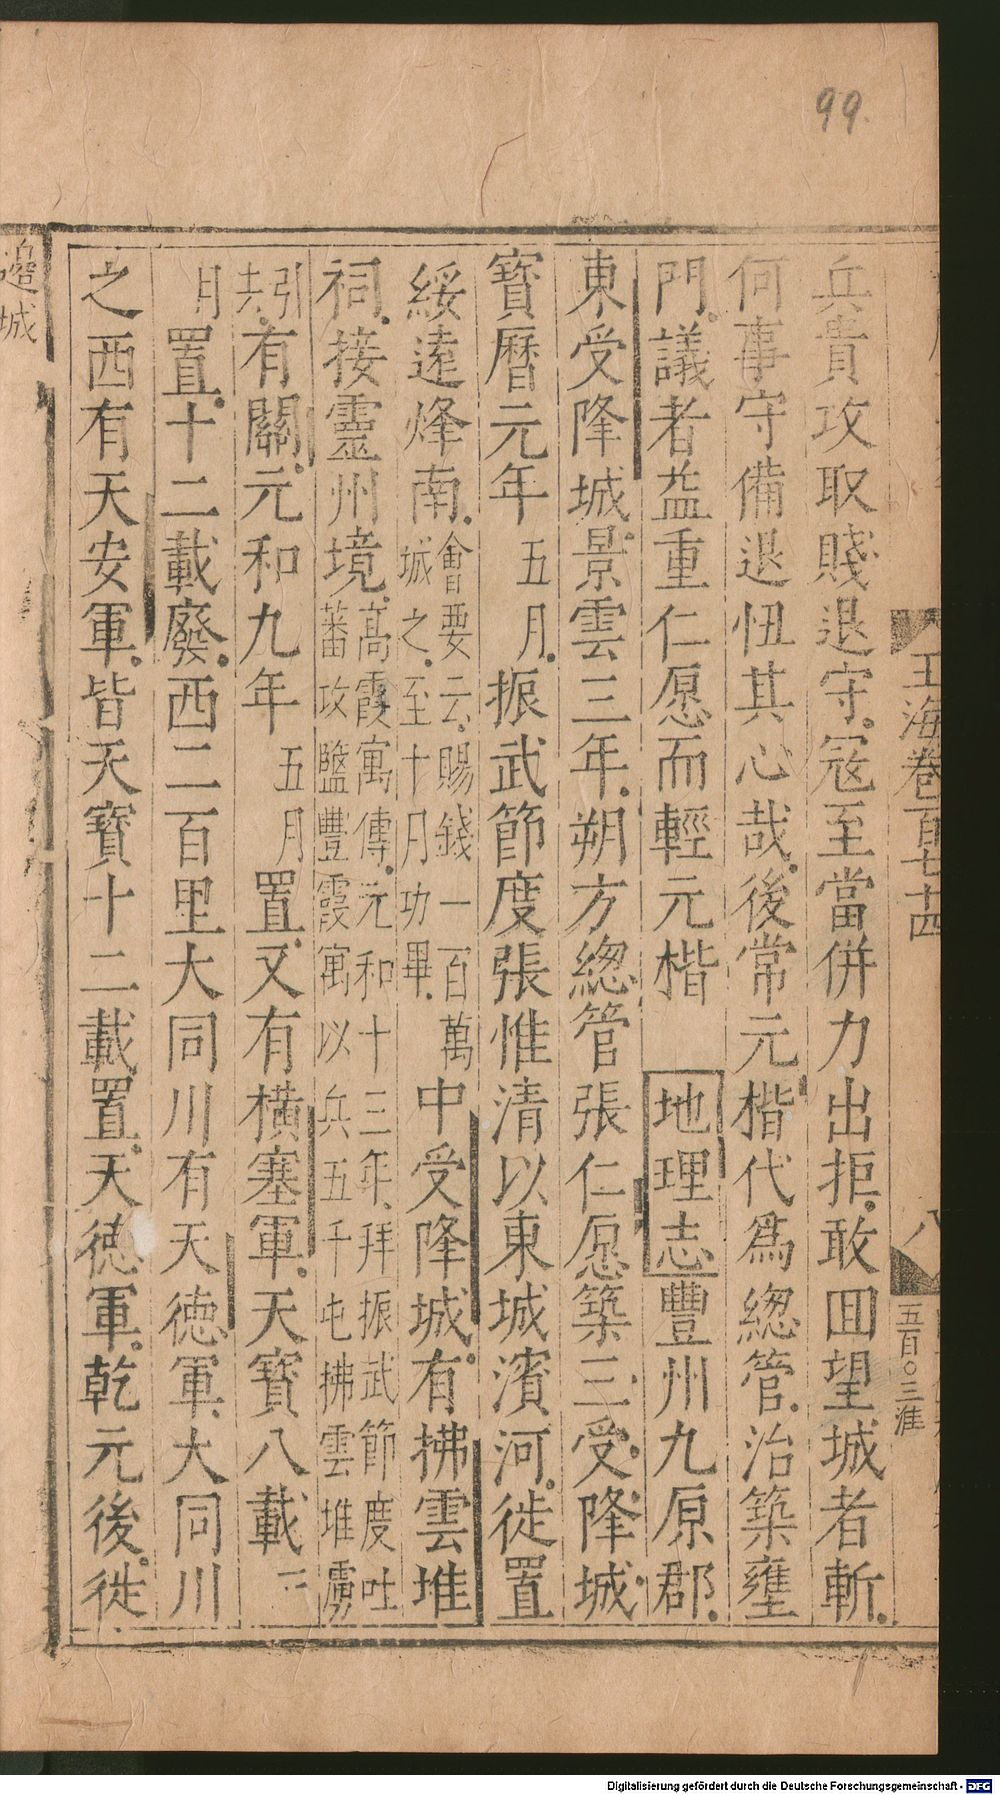 99.
玉海卷百七十四
八
五百○三淮
兵貴攻取賤退守。寇至當併力出拒。敢囬望城者斬。
何事守備退忸其心哉。後常元楷代爲緫管。治築壅
門。議者益重仁愿而輕元楷 地理志豐州九原郡。
東受降城。景雲三年。朔方緫管張仁愿築三受降城。
寶曆元年五月。振武節度張惟清以東城濱河。徙置
綏遠烽南。會要云。賜錢一百萬城之。至十月功畢。中受降城。有拂雲堆
祠。接靈州境。高霞寓傳。元和十三年。拜振武節度吐蕃攻鹽豐霞寓以兵五千屯拂雲堆虜
引去。有關。元和九年五月置。又有橫塞軍。天寶八載二
月置。十二載廢。西二百里大同川有天德軍。大同川
之西有天安軍。皆天寶十二載置。天德軍。乾元後。徙
邉城
Digitalisierung gefördert durch die Deutsche Forschungsgemeinschaft - DFG